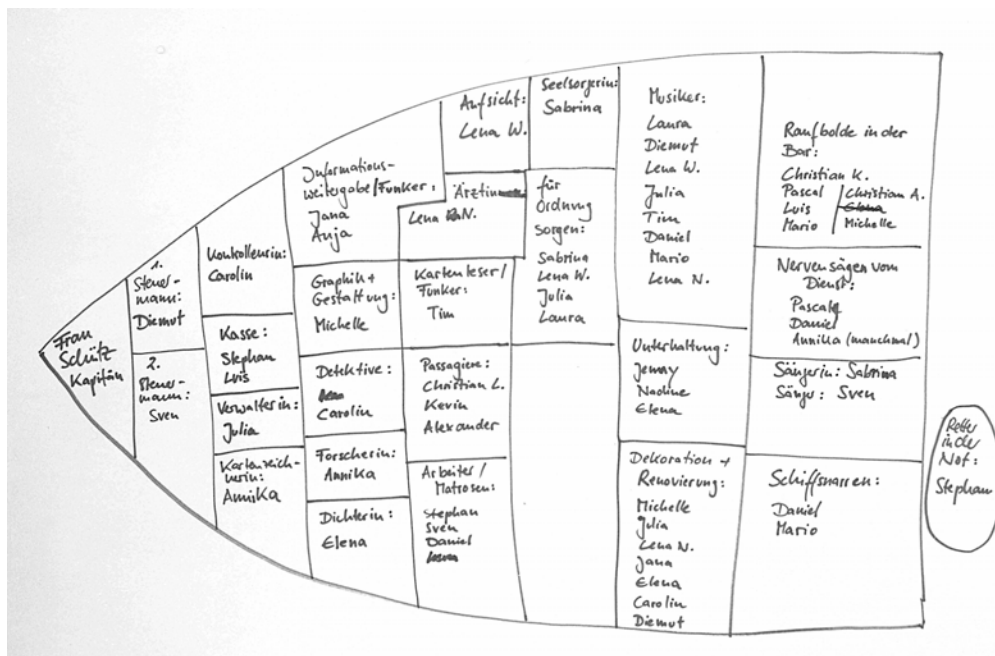 Frau
Schütz
Kapitän
1.
Steuer-
mann:
Diemut
2.
Steuer-
mann:
Sven
Kontrolleurin:
Carolin
Kasse:
Stephan
Luis
Verwalterin:
Julia
Kartenzeich-
nerin:
Annika
Informations-
weitergabe/Funker:
Jana
Anja
Graphik +
Gestaltung:
Michelle
Detektive:
Carolin
Forscherin:
Annika
Dichterin:
Elena
Aufsicht:
Lena W.
Ärztin
Lena N.
Kartenleser/
Funker:
Tim
Passagiere:
Christian L.
Kevin
Alexander
Arbeiter/
Matrosen:
Stephan
Sven
Daniel
Seelsorgerin:
Sabrina
für
Ordnung
sorgen:
Sabrina
Lena W.
Julia
Laura
Musiker:
Laura
Diemut
Lena W.
Julia
Tim
Daniel
Mario
Lena N.
Unterhaltung:
Jenny
Nadine
Elena
Dekoration +
Renovierung:
Michelle
Julia
Lena N.
Jana
Elena
Carolin
Diemut
Raufbolde in der
Bar:
Christian K.
Pascal Christian A.
Luis Elena
Mario Michelle
Nervensägen vom
Dienst:
Pascal
Daniel
Annika (manchmal)
Sängerin: Sabrina
Sänger: Sven
Schiffsnarren:
Daniel
Mario
Retter
in der
Not:
Stephan